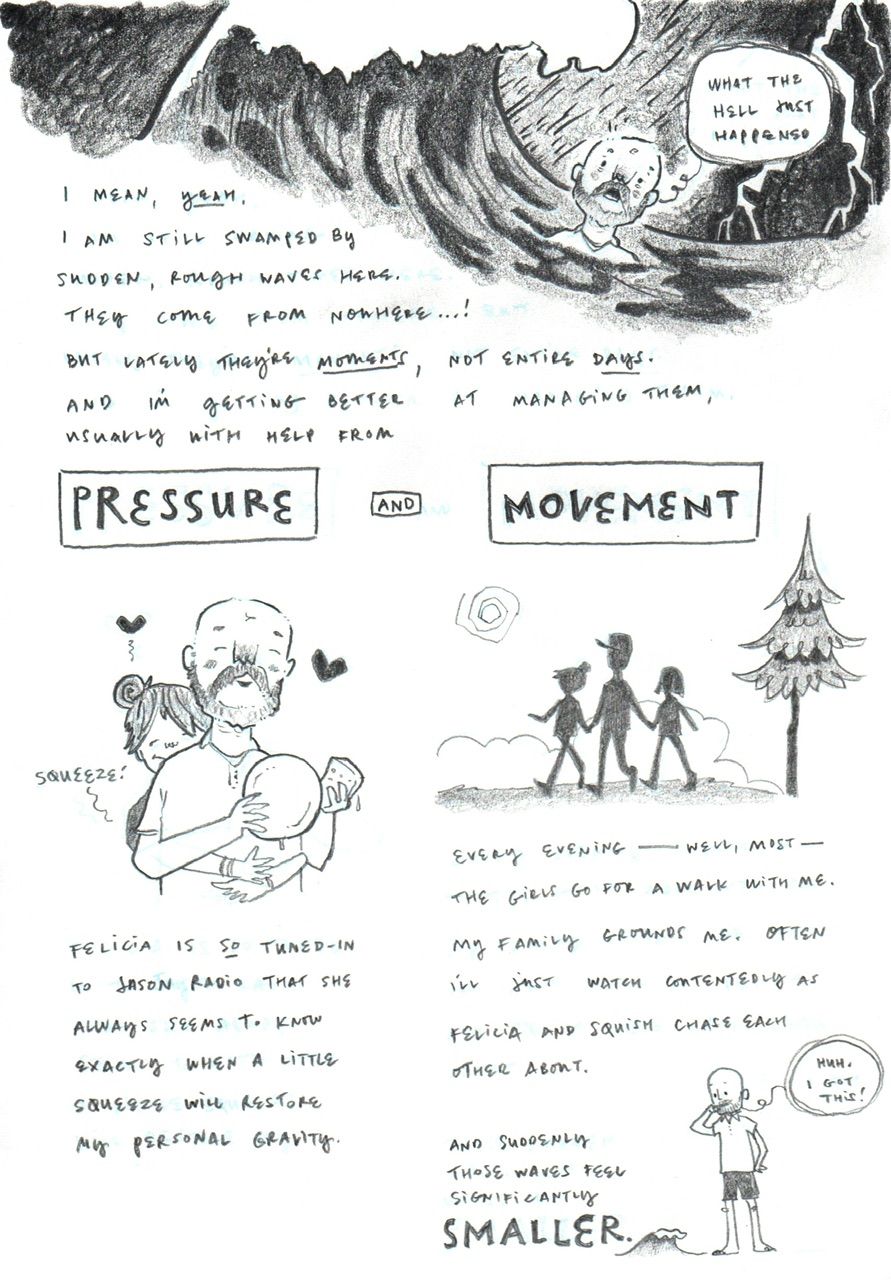 WHAT THE
HELL JUST
HAPPENED
I MEAN, YEAH.
I AM STILL SWAMPED BY
SUDDEN, ROUGH WAVES HERE.
THEY COME FROM NOWHERE...!
BUT LATELY THEY'RE MOMENTS, NOT ENTIRE DAYS.
AND I'M GETTING BETTER AT MANAGING THEM,
USUALLY WITH HELP FROM
PRESSURE AND MOVEMENT
SQUEEZE!
FELICIA IS SO TUNED-IN
TO JASON RADIO THAT SHE
ALWAYS SEEMS TO KNOW
EXACTLY WHEN A LITTLE
SQUEEZE WILL RESTORE
MY PERSONAL GRAVITY.
EVERY EVENING — WELL, MOST —
THE GIRLS GO FOR A WALK WITH ME.
MY FAMILY GROUNDS ME. OFTEN
I'LL JUST WATCH CONTENTEDLY AS
FELICIA AND SQUISH CHASE EACH
OTHER ABOUT.
HUH.
I GOT
THIS!
AND SUDDENLY
THOSE WAVES FEEL
SIGNIFICANTLY
SMALLER.